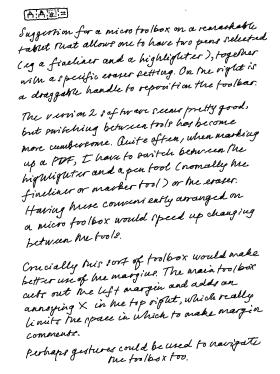 Suggestion for a micro toolbox on a remarkable
tablet that allows one to have two pens selected
(eg a fineliner and a highlighter), together
with a specific eraser setting. On the right is
a draggable handle to reposition the toolbar.
The version 2 software seems pretty good,
but switching between tools has become
more cumbersome. Quite often, when marking
up a PDF, I have to switch between the
highlighter and a pen tool (normally the
fineliner or marker tool) or the eraser.
Having these conveniently arranged on
a micro toolbox would speed up changing
between the tools.
Crucially this sort of toolbox would make
better use of the margins. The main toolbox
cuts out the left margin and adds an
annoying X in the top right, which really
limits the space in which to make margin
comments.
Perhaps gestures could be used to navigate
the toolbox too.